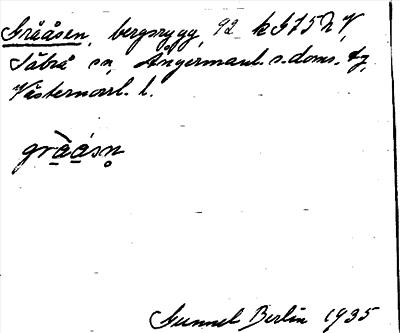 Grååsen, bergsrygg, 92 k G 7 5 h V,
Säbrå sn, Ångermanl. s. doms. tg,
Västernorrl. l.
gràåsn̥
Gunnel Berlin 1935